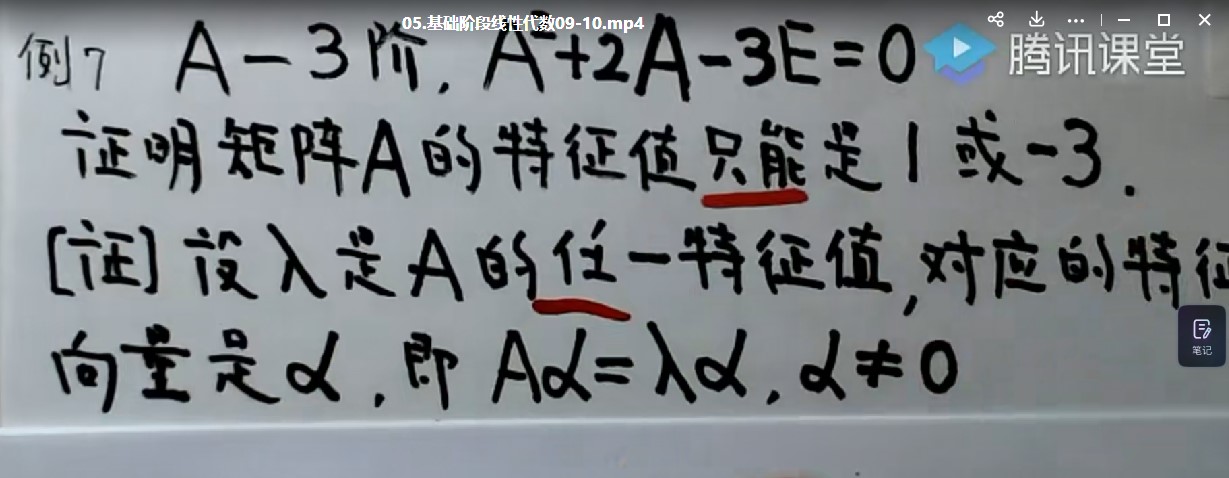 05.基础阶段线性代数09-10.mp4
例7 A-3阶, A²+2A-3E=0
腾讯课堂
证明矩阵A的特征值只能是1或-3.
[证] 设λ是A的任一特征值,对应的特征
笔记
向量是α,即 Aα=λα,α≠0